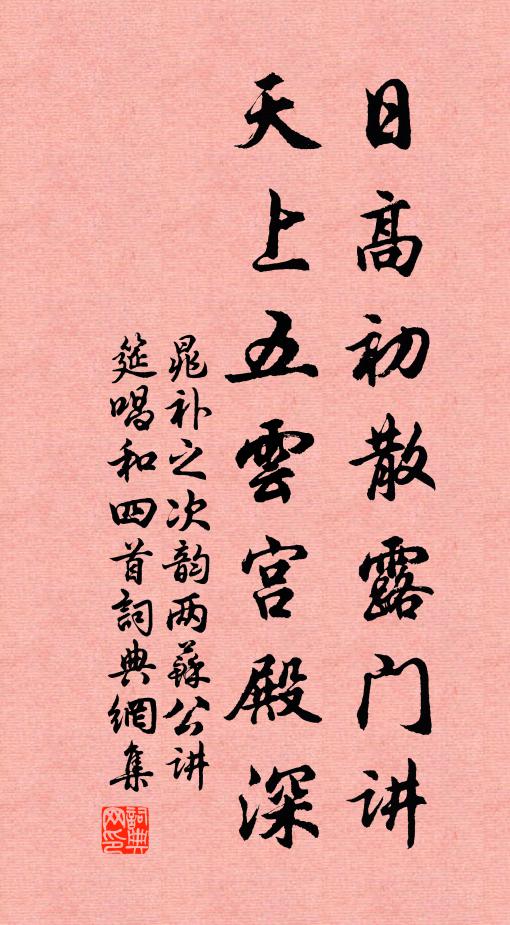 日高初散露门讲
天上五雲宫殿深
晁补之次韵两蘇公讲
筵唱和四首詞典網集
詞典
网印